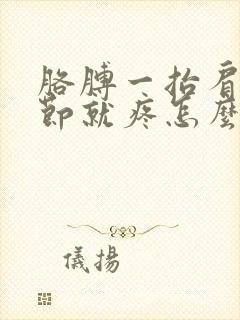 胳膊一抬肩
節就疼怎麼
儀揚